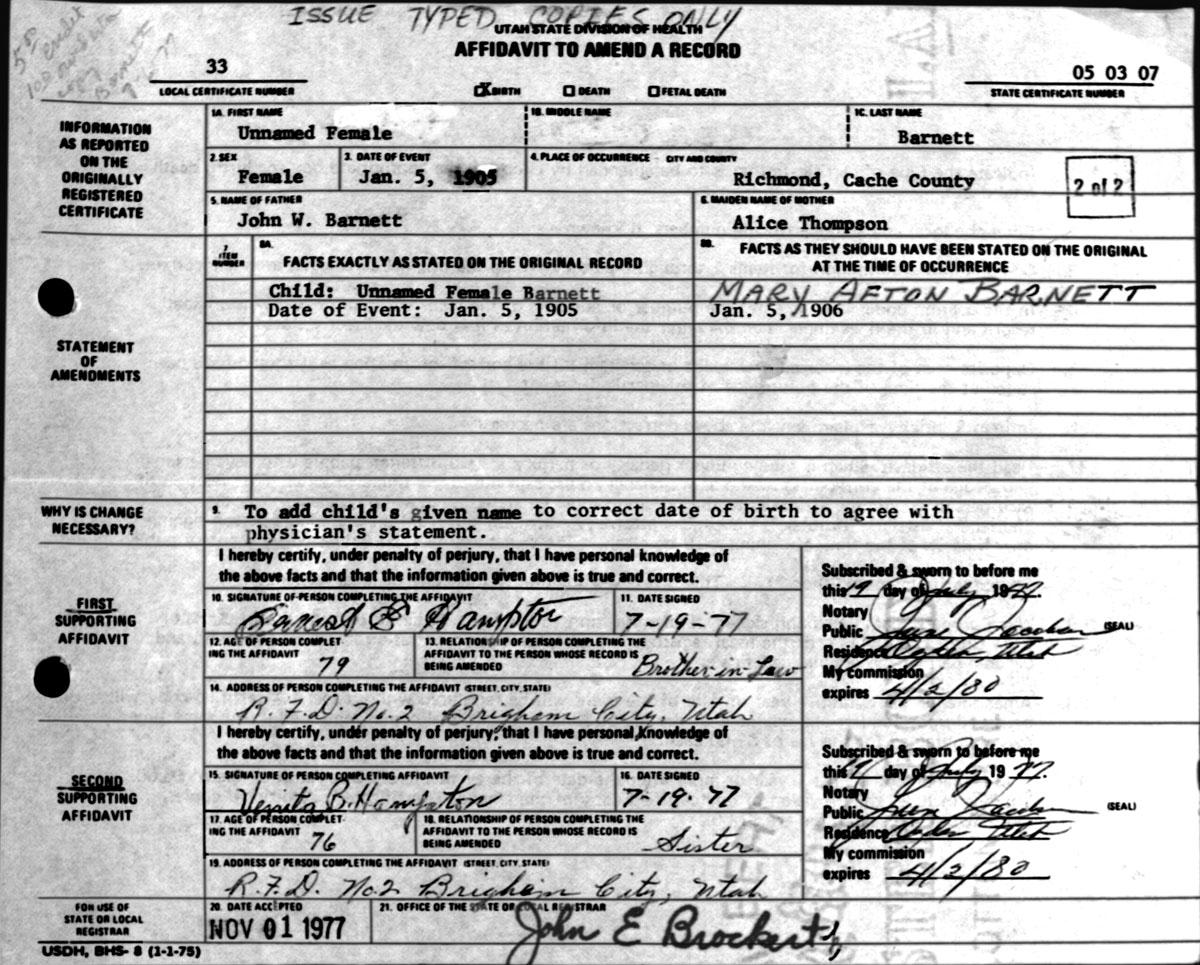 ISSUE TYPED COPIES ONLY
UTAH STATE DIVISION OF HEALTH
AFFIDAVIT TO AMEND A RECORD
33
LOCAL CERTIFICATE NUMBER
X BIRTH DEATH FETAL DEATH
05 03 07
STATE CERTIFICATE NUMBER
INFORMATION
AS REPORTED
ON THE
ORIGINALLY
REGISTERED
CERTIFICATE
1A. FIRST NAME 1B. MIDDLE NAME 1C. LAST NAME
Unnamed Female Barnett
2. SEX 3. DATE OF EVENT 4. PLACE OF OCCURRENCE - CITY AND COUNTY
Female Jan. 5, 1905 Richmond, Cache County
2 of 2
5. NAME OF FATHER 6. MAIDEN NAME OF MOTHER
John W. Barnett Alice Thompson
STATEMENT
OF
AMENDMENTS
7. ITEM NUMBER
8A. FACTS EXACTLY AS STATED ON THE ORIGINAL RECORD
8B. FACTS AS THEY SHOULD HAVE BEEN STATED ON THE ORIGINAL
AT THE TIME OF OCCURRENCE
Child: Unnamed Female Barnett MARY AFTON BARNETT
Date of Event: Jan. 5, 1905 Jan. 5, 1906
WHY IS CHANGE
NECESSARY?
9. To add child's given name to correct date of birth to agree with
physician's statement.
FIRST
SUPPORTING
AFFIDAVIT
I hereby certify, under penalty of perjury, that I have personal knowledge of
the above facts and that the information given above is true and correct.
10. SIGNATURE OF PERSON COMPLETING THE AFFIDAVIT 11. DATE SIGNED
E Hampton 7-19-77
12. AGE OF PERSON COMPLETING THE AFFIDAVIT
79
13. RELATIONSHIP OF PERSON COMPLETING THE
AFFIDAVIT TO THE PERSON WHOSE RECORD IS
BEING AMENDED Brother-in-Law
14. ADDRESS OF PERSON COMPLETING THE AFFIDAVIT (STREET, CITY, STATE)
R.F.D. No. 2 Brigham City, Utah
Subscribed & sworn to before me
this 19 day of July 1977.
Notary
Public June Jacobsen (SEAL)
Residence Ogden, Utah
My commission
expires 4/2/80
SECOND
SUPPORTING
AFFIDAVIT
I hereby certify, under penalty of perjury, that I have personal knowledge of
the above facts and that the information given above is true and correct.
15. SIGNATURE OF PERSON COMPLETING AFFIDAVIT 16. DATE SIGNED
B. Hampton 7-19-77
17. AGE OF PERSON COMPLETING THE AFFIDAVIT
76
18. RELATIONSHIP OF PERSON COMPLETING THE
AFFIDAVIT TO THE PERSON WHOSE RECORD IS
BEING AMENDED Sister
19. ADDRESS OF PERSON COMPLETING THE AFFIDAVIT (STREET, CITY, STATE)
R.F.D. No. 2 Brigham City, Utah
Subscribed & sworn to before me
this 19 day of July 1977.
Notary
Public June Jacobsen (SEAL)
Residence Ogden Utah
My commission
expires 4/2/80
FOR USE OF
STATE OR LOCAL
REGISTRAR
20. DATE ACCEPTED 21. OFFICE OF THE STATE OR LOCAL REGISTRAR
NOV 01 1977 John E Brockert
USDH, BHS- 8 (1-1-75)